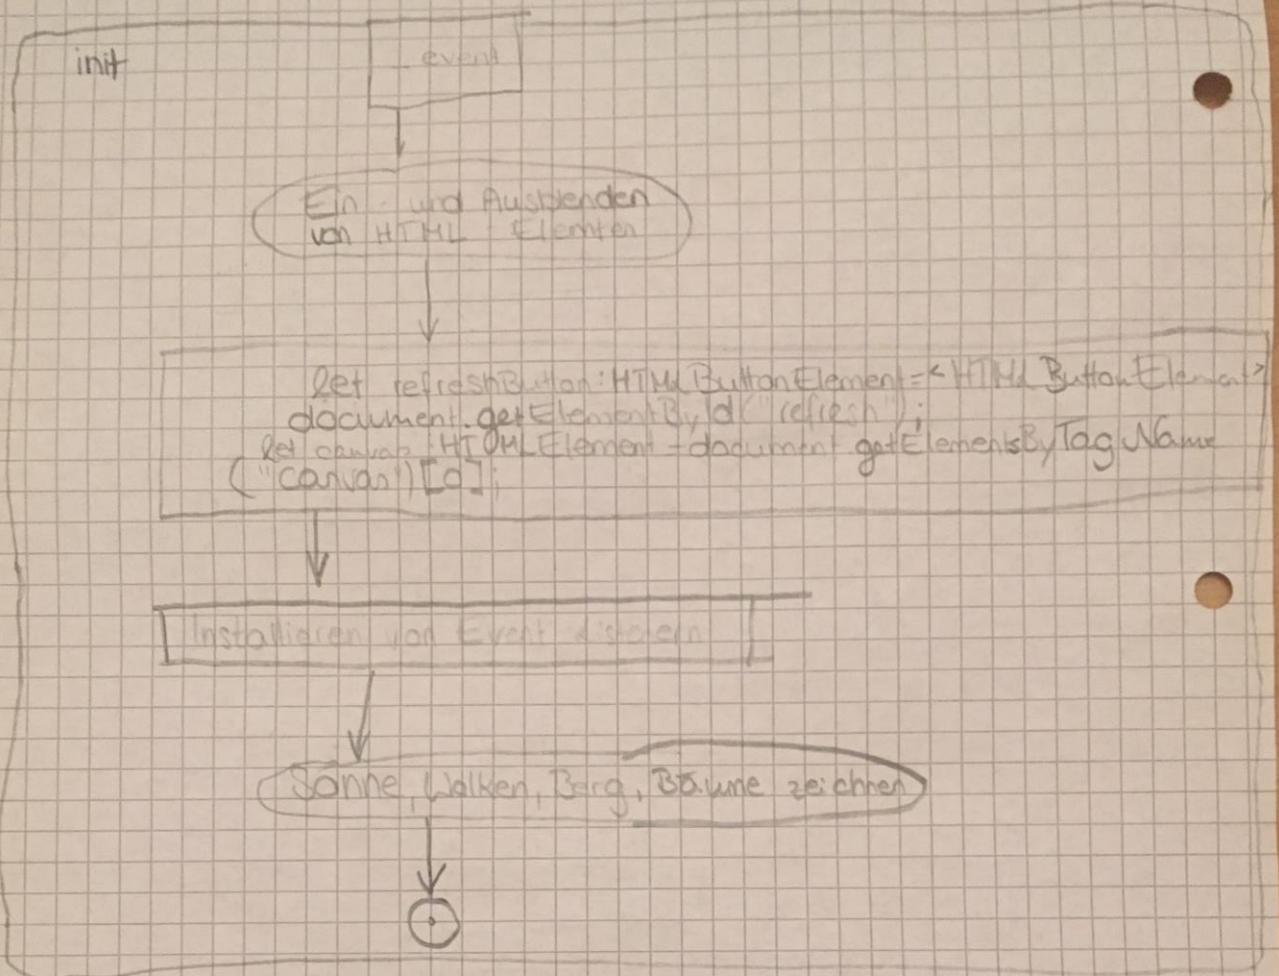 init
_event
Ein- und Ausblenden
von HTML Elemten
let refreshButton:HTMLButtonElement=<HTMLButtonElement>
document.getElementById("refresh");
let canvas:HTMLElement=document.getElementsByTagName
("canvas")[0];
Installieren von Event
Sonne, Wolken, Berg, Bäume zeichnen